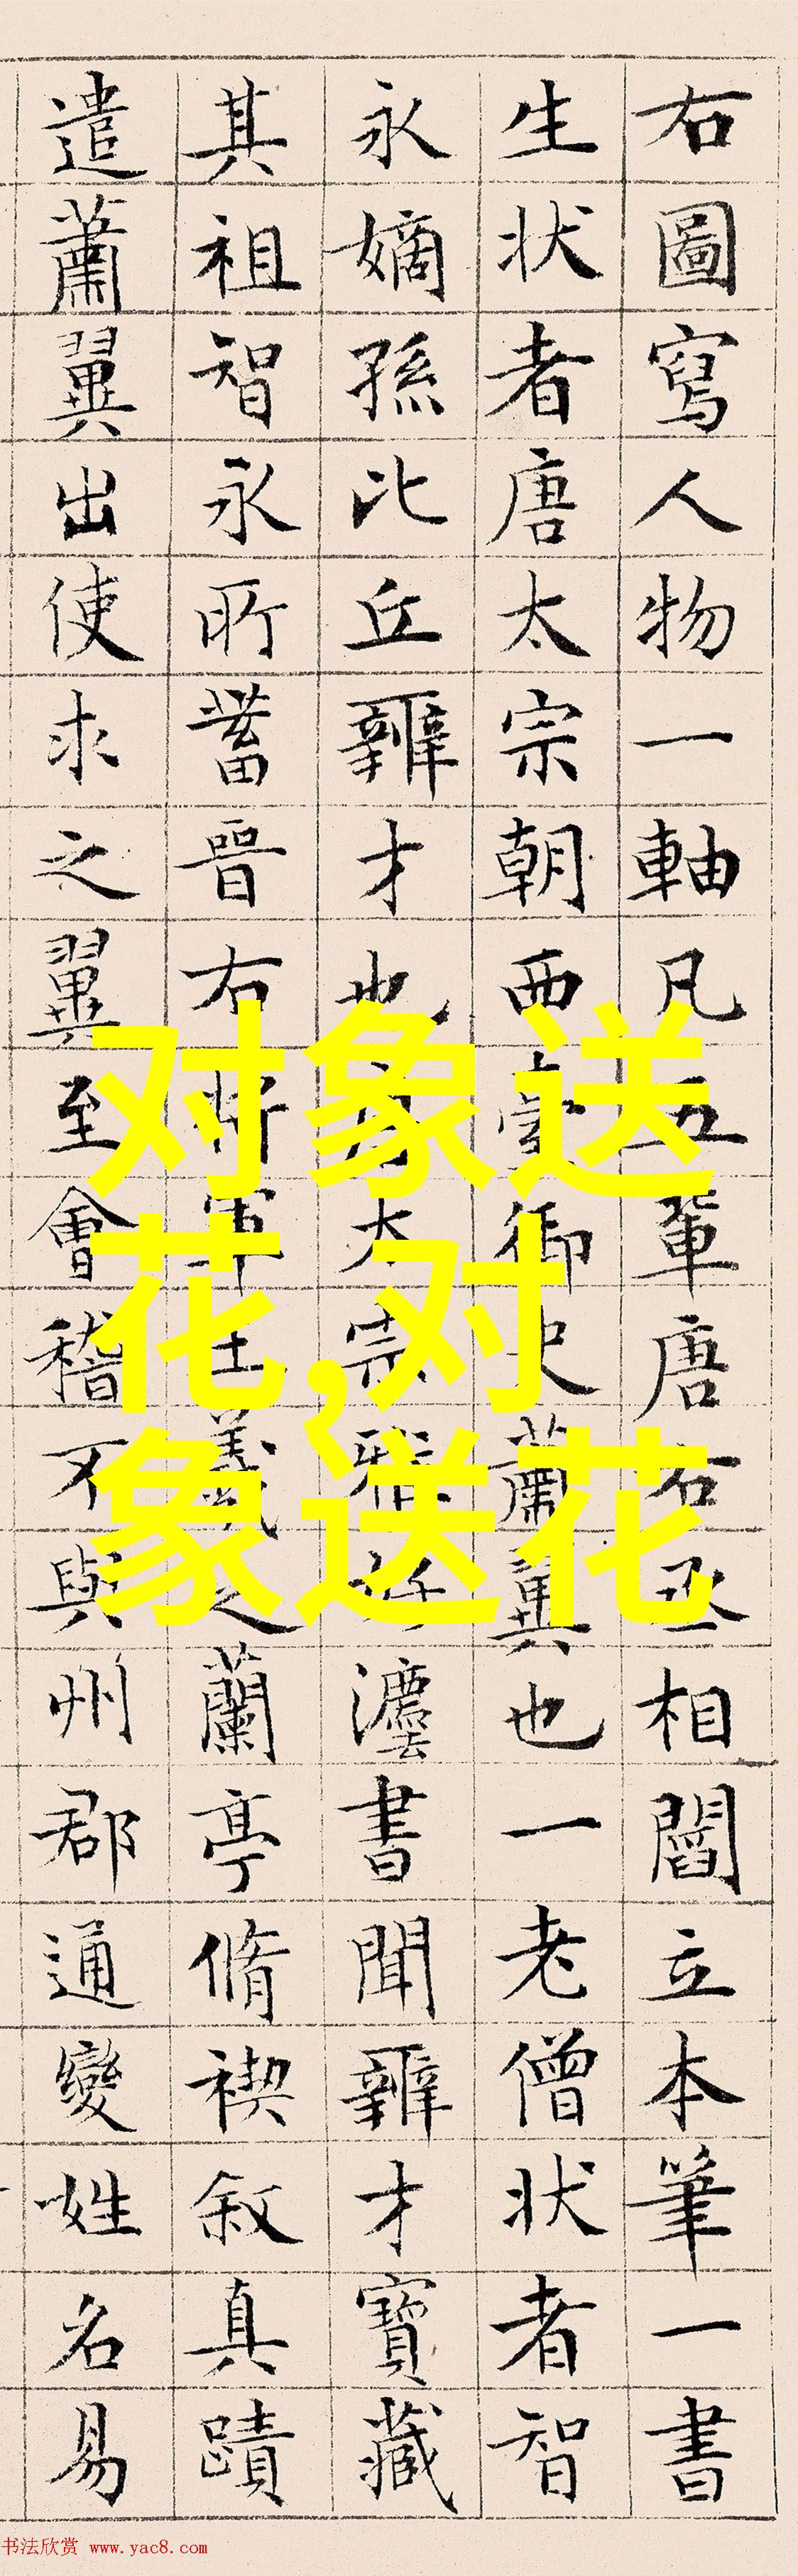 右圖寫人物一軸凡五輩唐右丞相閻立本筆一書
生状者唐太宗朝西臺御史蕭翼也一老僧状者智
永嫡孫比丘辯才也太宗雅好灋書聞辯才寶藏
其祖智永所蓄晉右將軍王羲之蘭亭脩禊敘真蹟
遣蕭翼出使求之翼至會稽不與州郡通變姓名易
对象送
花,对
象送花
书法欣赏 www.yac8.com